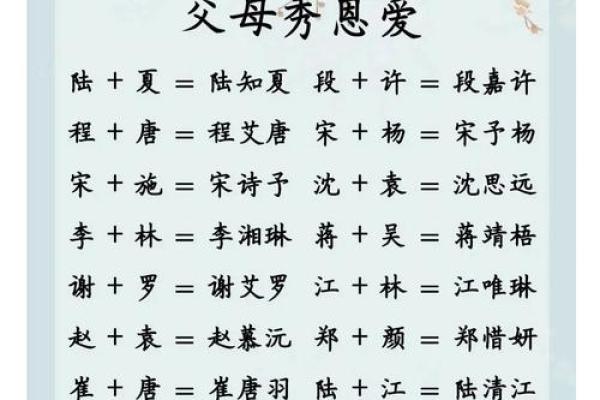 父母秀恩爱
陆 + 夏 = 陆知夏 段 + 许 = 段嘉许
程 + 唐 = 程艾唐 宋 + 杨 = 宋予杨
宋 + 施 = 宋诗予 沈 + 袁 = 沈思远
李 + 林 = 李湘琳 蒋 + 吴 = 蒋靖梧
谢 + 罗 = 谢艾罗 江 + 林 = 江唯琳
赵 + 袁 = 赵慕沅 郑 + 颜 = 郑惜妍
崔 + 唐 = 崔唐羽 陆 + 江 = 陆清江